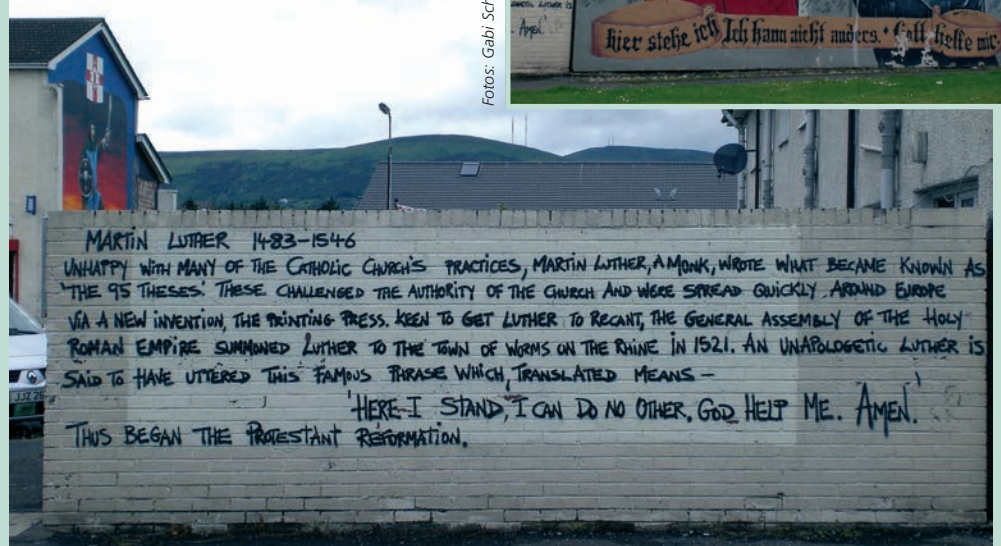 Fotos: Gabi Sch
AMEN.
hier stehe ich Ich kann nicht anders. Gott helfe mir
MARTIN LUTHER 1483-1546
UNHAPPY WITH MANY OF THE CATHOLIC CHURCH'S PRACTICES, MARTIN LUTHER, A MONK, WROTE WHAT BECAME KNOWN AS
'THE 95 THESES.' THESE CHALLENGED THE AUTHORITY OF THE CHURCH AND WERE SPREAD QUICKLY AROUND EUROPE
VIA A NEW INVENTION, THE PRINTING PRESS. KEEN TO GET LUTHER TO RECANT, THE GENERAL ASSEMBLY OF THE HOLY
ROMAN EMPIRE SUMMONED LUTHER TO THE TOWN OF WORMS ON THE RHINE IN 1521. AN UNAPOLOGETIC LUTHER IS
SAID TO HAVE UTTERED THIS FAMOUS PHRASE WHICH, TRANSLATED MEANS -
'HERE I STAND, I CAN DO NO OTHER. GOD HELP ME. AMEN.'
THUS BEGAN THE PROTESTANT REFORMATION.
JJZ 26